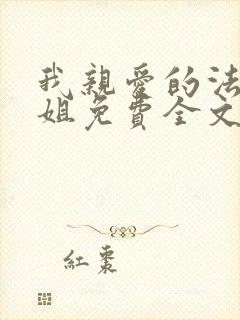 我親愛的法
姐免費全文
紅棗